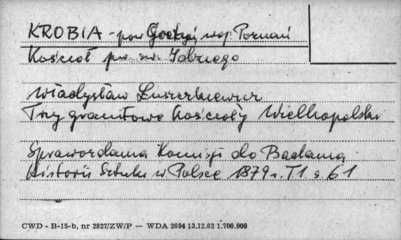 KROBIA - pow Gostyń woj. Poznań
Kościół p.w. św. Idziego
Władysław Łuszczkiewicz
Trzy granitowe kościoły Wielkopolski
Sprawozdania Komisji do Badania
Historii Sztuki w Polsce 1879 r. T1 s 61
CWD - B-15-b, nr 2827/ZW/P — WDA 2694 13.12.62 1.700.000